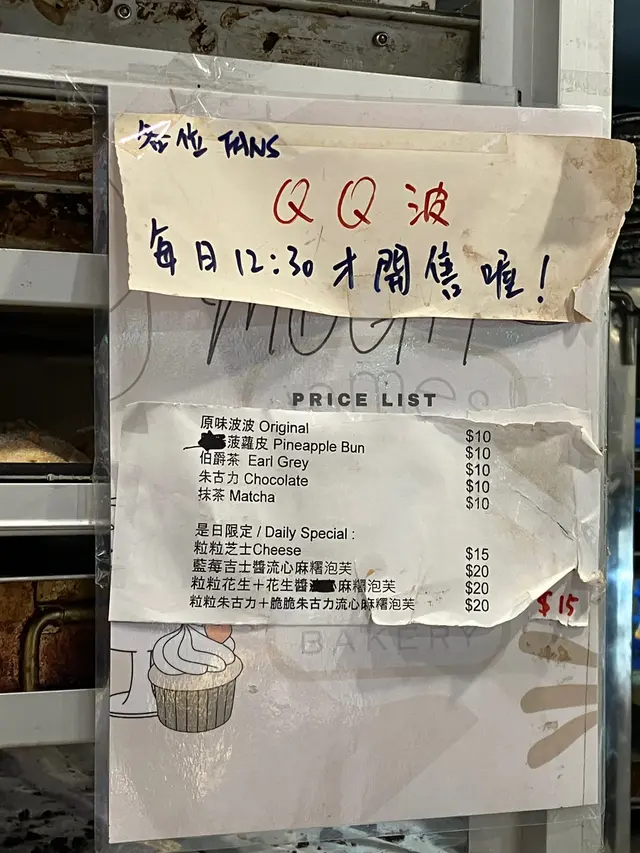 各位 FANS
Q Q 波
每日12:30才開售喔!
MOCHI
PRICE LIST
原味波波 Original $10
菠蘿皮 Pineapple Bun $10
伯爵茶 Earl Grey $10
朱古力 Chocolate $10
抹茶 Matcha $10
是日限定 / Daily Special :
粒粒芝士Cheese $15
藍莓吉士醬流心麻糬泡芙 $20
粒粒花生+花生醬麻糬泡芙 $20
粒粒朱古力+脆脆朱古力流心麻糬泡芙 $20
$15
BAKERY